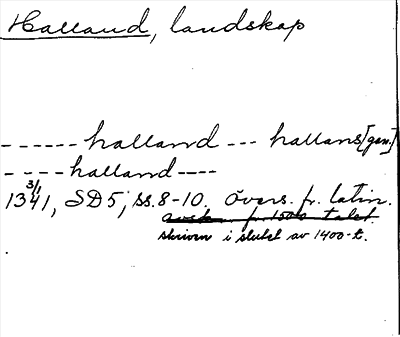 Halland, landskap
------halland --- hallans[gen.]
----halland----
3/1
1341, SD5, ss.8-10. Övers. fr. latin.
avskr. fr. 1500 talet.
skriven i slutet av 1400-t.